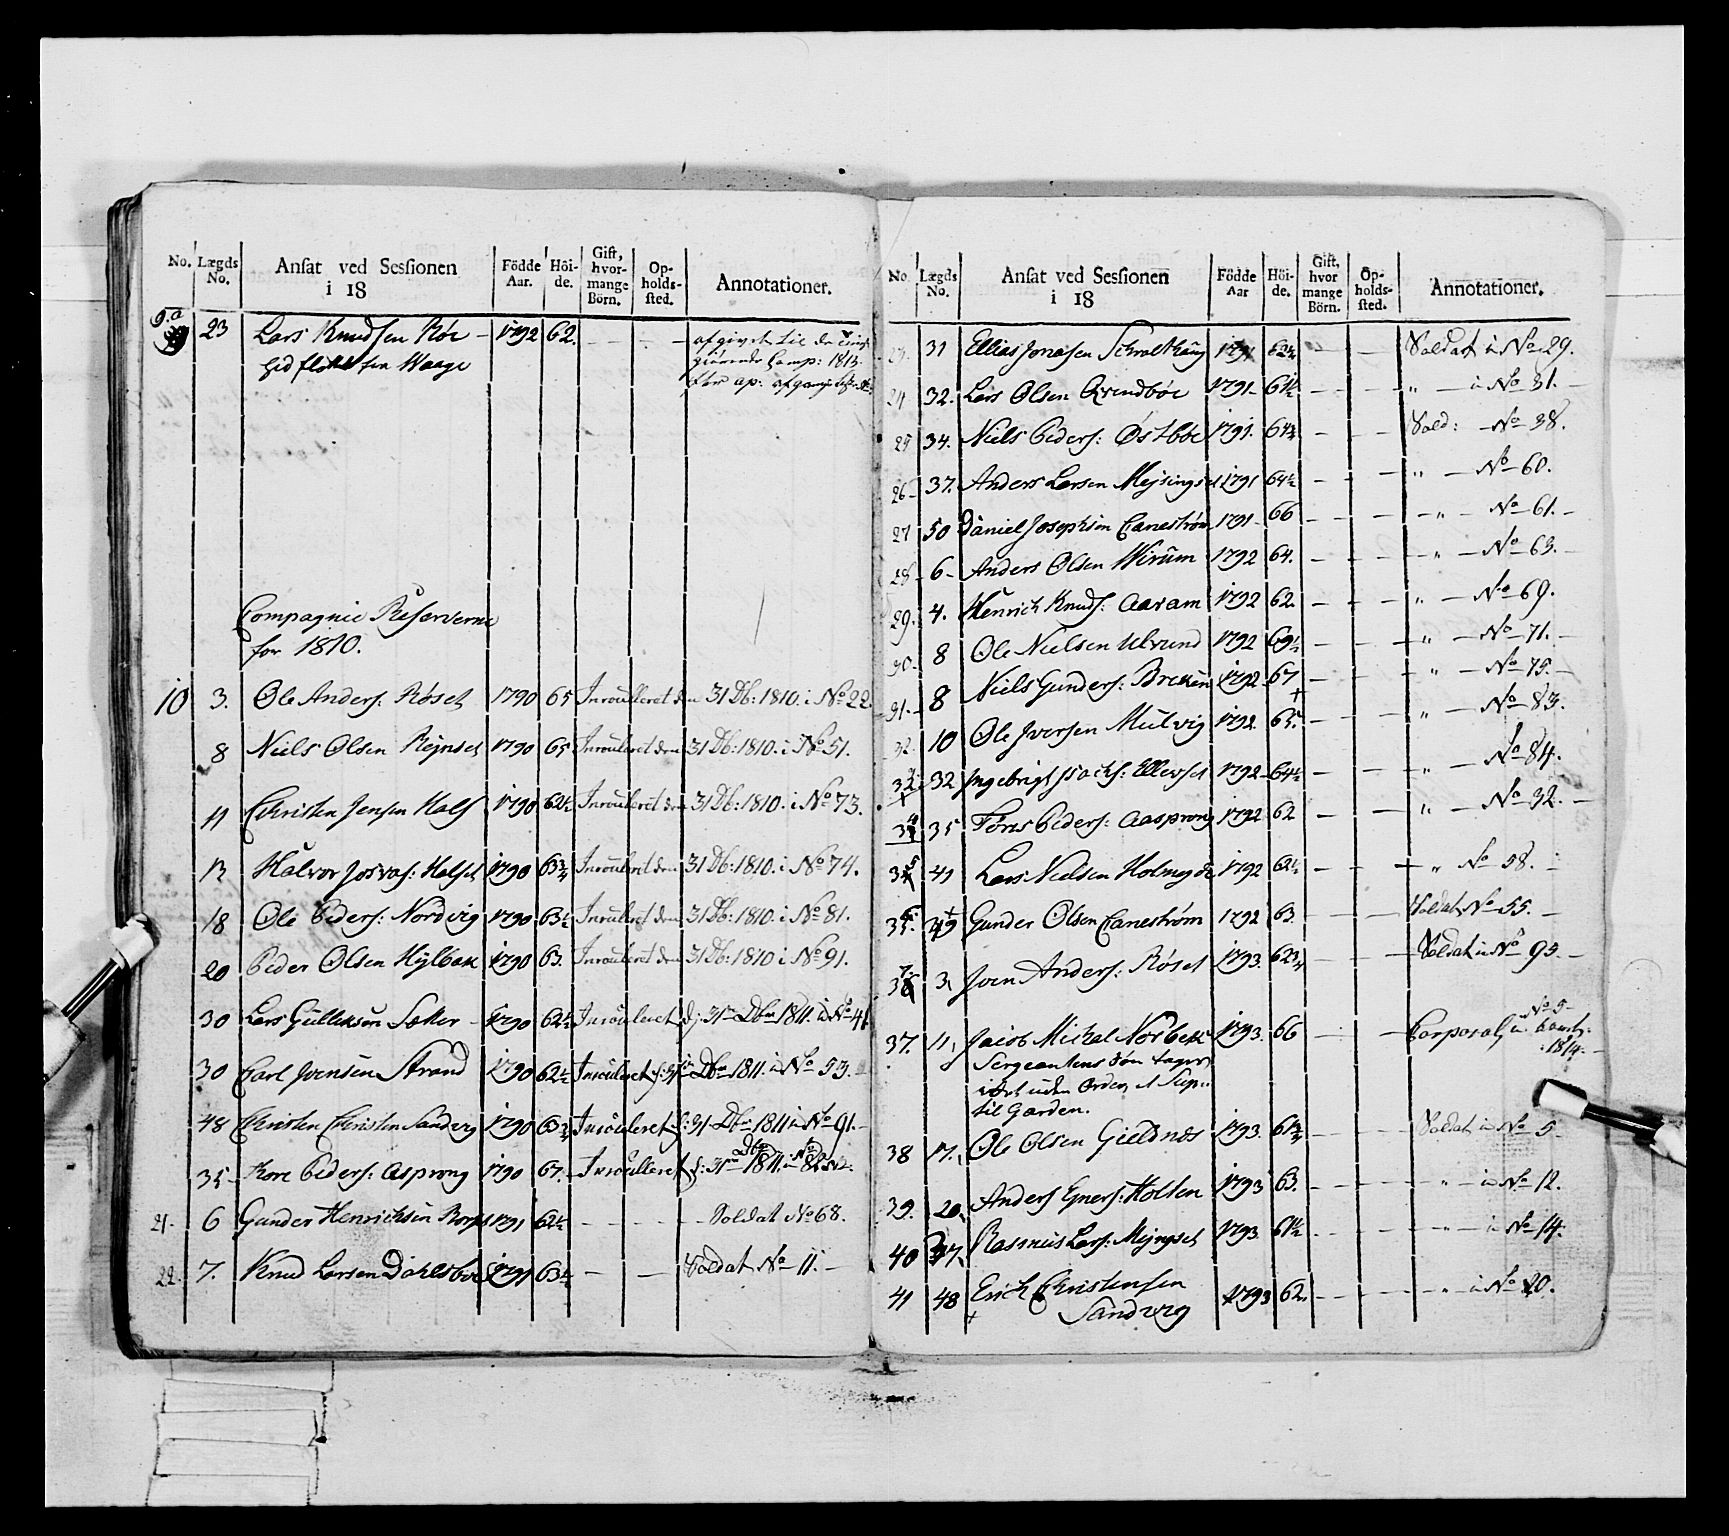 No. Lægds No. Ansat ved Sessionen i 18 Födde Aar. Höi-de. Gift, hvor-mange Börn. Op-holds-sted. Annotationer.
9.a 23 Lars Knudsen Röe 1792 62. - - - afgivet til de
Camp: 1813.
Waage
Compagnie Reserverne
for 1810.
10 3. Ole Anders: Röset 1790 65 Inroulleret den 31 Db: 1810. i No 22
8 Niels Olsen Rejnset 1790 65 Inroulleret den 31 Db: 1810. i No 51.
11 Christen Jensen Hals 1790 62½ Inroulleret den 31 Db: 1810. i No 73.
13 Halvor Josvas: Halset 1790 63¾ Inroulleret den 31 Db: 1810. i No 74.
18 Ole Peders: Nordvig 1790 63½ Inroulleret den 31 Db: 1810. i No 81.
20 Peder Olsen Hylbak 1790 63. Inroulleret den 31 Db: 1810 i No 91.
30 Lars Gulliksen Sæter 1790 62½ Inroulleret d: 31 Dbr 1811. i No 41
30 Carl Iversen Strand 1790 62½ Inroulleret d: 31 Dbr 1811. i No 53.
48 Christen Christensen Sandvig 1790 63¾ Inroulleret d: 31 Dbr 1811 i No 91.
35 Tore Peders: Asprong 1790 67. Inroulleret d: 31 Dbr 1811. i No 82
21. 6 Gunder Henrichsen 1791 62½ - - - Soldat No 68.
22. 7. Knud Larsen Dahlsböe 1791 63½ - - Soldat No 11. -
No. Lægds No. Ansat ved Sessionen i 18 Födde Aar Höi-de. Gift, hvor mange Börn. Op-holds-sted. Annotationer.
23. 31 Ellias Jonasen 1791 62½ - - Soldat i No 29.
24 32. Lars Olsen Qvendböe 1791 61½ - - - „ - i No 31. -
25 34. Niels Peders: Östböe 1791. 64¾ - - - Sold: - No 38.
26 37. Anders Larsen Mejsingset 1791 64½ - - - „ - No 60.
27 50 Daniel Josephsen Caneström 1791 66 - - - „ - No 61. -
28 6 Anders Olsen Wirum 1792 64. - - - „ - No 63. -
29. 4. Henrich Knuds: Aaram 1792 62. - - - „ - No 69.
30. 8 Ole Nielsen Ulvund 1792 69½ - - - „ - No 71. -
31. 8 Niels Gunders: Brekken 1792 67 - - - „ - No 75. -
32. 10 Ole Iversen Mulvig 1792 65. - - - „ - No 83.
33 32 Ingebrigt Isachs: Ellevset 1792 64½ - - - „ - No 84.
34 35 Töres Peders: Aasprong 1792 62 - - - „ - No 32. -
35 41 Lars Nielsen 1792 62½ - - - „ No 58. -
36. 49 Gunder Olsen Caneström 1792 63. - - - Soldat No 55. -
37 3 Iven Anders: Röset 1793. 62¾ - - - Soldat i No 95. -
37. 11 Jacob Michal Norbek 1793. 66 - - - Corporal i No 5
1814.
Sergeantens Sön tages
uden Orden
til Garden.
38 17. Ole Olsen Gieldnæs 1793. 61¾ - - - Soldat i No 5
39. 20. Anders Eners: Holten 1793 63. - - - „ - i No 12.
40 37. Rasmus Lars: Mejngset 1793. 61½ - - - „ - i No 14.
41 48 Erich Christensen
Sandvig 1793 62. - - - „ - i No 20.